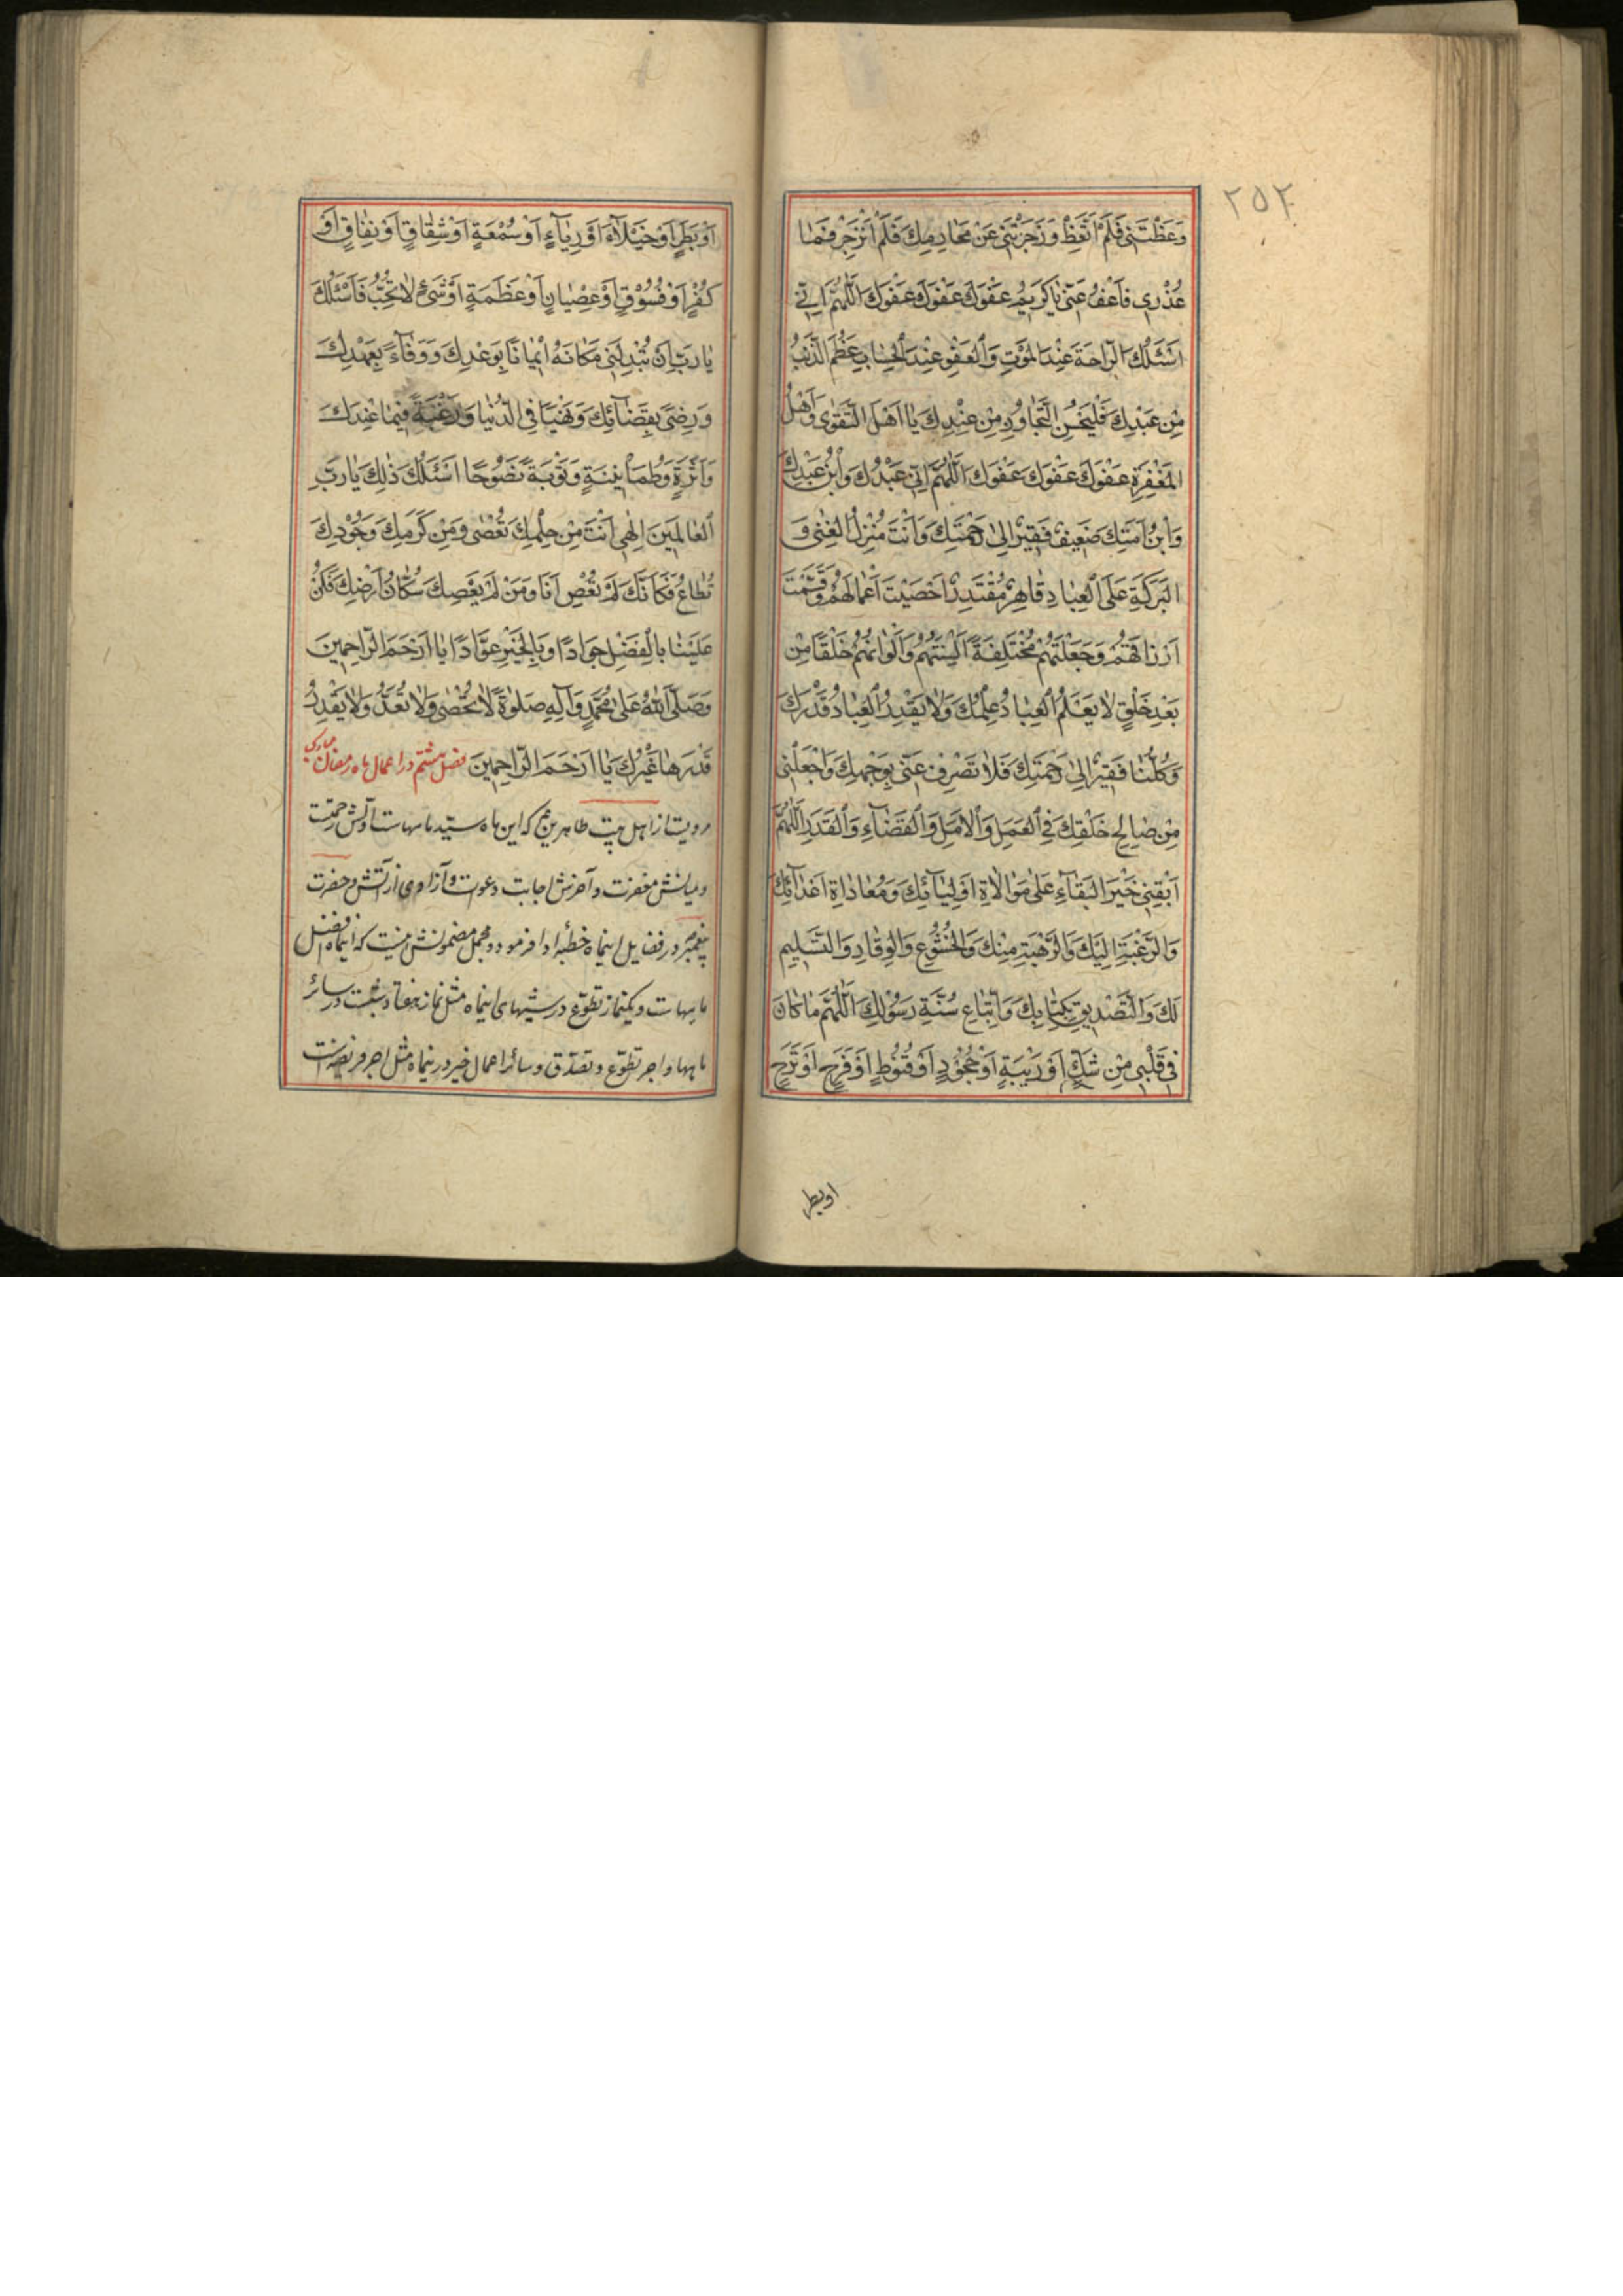 ٢٥٢
وَعَظْتَنى فَلَمْ اَتَّعِظْ وَزَجَرْتَنى عَنْ مَحٰارِمِكَ فَلَمْ اَنْزَجِرْ فَمٰا
عُذْرى فَاعْفُ عَنّى يٰا كَريمُ عَفْوَكَ عَفْوَكَ عَفْوَكَ اَللّٰهُمَّ اِنّى
اَسْئَلُكَ الرّٰاحَةَ عِنْدَ الْمَوْتِ وَالْعَفْوَ عِنْدَ الْحِسٰابِ عَظُمَ الذَّنْبُ
مِنْ عَبْدِكَ فَلْيَحْسُنِ التَّجٰاوُزُ مِنْ عِنْدِكَ يٰا اَهْلَ التَّقْوٰى وَاَهْلَ
الْمَغْفِرَةِ عَفْوَكَ عَفْوَكَ عَفْوَكَ اَللّٰهُمَّ اِنّى عَبْدُكَ وَابْنُ عَبْدِكَ
وَابْنُ اَمَتِكَ ضَعيفٌ فَقيرٌ اِلىٰ رَحْمَتِكَ وَاَنْتَ مُنْزِلُ الْغِنىٰ وَ
الْبَرَكَةِ عَلَى الْعِبٰادِ قٰاهِرٌ مُقْتَدِرٌ اَحْصَيْتَ اَعْمٰالَهُمْ وَقَسَمْتَ
اَرْزٰاقَهُمْ وَجَعَلْتَهُمْ مُخْتَلِفَةً اَلْسِنَتُهُمْ وَاَلْوٰانُهُمْ خَلْقًا مِنْ
بَعْدِ خَلْقٍ لاٰ يَعْلَمُ الْعِبٰادُ عِلْمَكَ وَلاٰ يَقْدِرُ الْعِبٰادُ قَدْرَكَ
وَكُلُّنٰا فَقيرٌ اِلىٰ رَحْمَتِكَ فَلاٰ تَصْرِفْ عَنّى بِوَجْهِكَ وَاجْعَلْنى
مِنْ صٰالِحِ خَلْقِكَ فِى الْعَمَلِ وَالْاَمَلِ وَالْقَضٰآءِ وَالْقَدَرِ اَللّٰهُمَّ
اَبْقِنى خَيْرَ الْبَقٰآءِ عَلىٰ مُوٰالاٰةِ اَوْلِيٰآئِكَ وَمُعٰادٰاةِ اَعْدٰآئِكَ
وَالرَّغْبَةِ اِلَيْكَ وَالرَّهْبَةِ مِنْكَ وَالْخُشُوعِ وَالْوِقٰارِ وَالتَّسْليمِ
لَكَ وَالتَّصْديقِ بِكِتٰابِكَ وَاتِّبٰاعِ سُنَّةِ رَسُولِكَ اَللّٰهُمَّ مٰا كٰانَ
فى قَلْبى مِنْ شَكٍّ اَوْ رَيْبَةٍ اَوْ جُحُودٍ اَوْ قُنُوطٍ اَوْ فَرَحٍ اَوْ تَرَحٍ
او بطر
اَوْ بَطَرٍ اَوْ خُيَلآءَ اَوْ رِيٰآءٍ اَوْ سُمْعَةٍ اَوْ شِقٰاقٍ اَوْ نِفٰاقٍ اَوْ
كُفْرٍ اَوْ فُسُوْقٍ اَوْ عِصْيٰانٍ اَوْ عَظَمَةٍ اَوْ شَىْءٍ لاٰ تُحِبُّ فَاَسْئَلُكَ
يٰا رَبِّ اَنْ تُبْدِلَنى مَكٰانَهُ ايمٰانًا بِوَعْدِكَ وَ وَفٰآءً بِعَهْدِكَ
وَرِضًى بِقَضٰآئِكَ وَ فِى الدُّنْيٰا وَرَغْبَةً فيمٰا عِنْدَكَ
وَاَثَرَةً وَطُمَأْنينَةٍ وَتَوْبَةً نَصُوْحًا اَسْئَلُكَ ذٰلِكَ يٰا رَبَّ
الْعٰالَمينَ اِلٰهى اَنْتَ مِنْ حِلْمِكَ تُعْصٰى وَمِنْ كَرَمِكَ وَجُوْدِكَ
تُطٰاعُ فَكَاَنَّكَ لَمْ تُعْصَ اَنَا وَمَنْ لَمْ يَعْصِكَ سُكّٰانُ اَرْضِكَ فَكُنْ
عَلَيْنٰا بِالْفَضْلِ جَوٰادًا وَبِالْخَيْرِ عَوّٰادًا يٰا اَرْحَمَ الرّٰاحِمينَ
وَصَلَّى اللّٰهُ عَلىٰ مُحَمَّدٍ وَآلِهِ صَلوٰةً لاٰ تُحْصٰى وَلاٰ تُعَدُّ وَلاٰ يَقْدِرُ
قَدْرَهٰا غَيْرُكَ يٰا اَرْحَمَ الرّٰاحِمينَ فصل هشتم در اعمال ماه رمضان مبارك
مرويست از اهل بيت طاهرين ع كه اين ماه سيّد ماههاست اوّلش رحمت
و ميانش مغفرت و آخرش اجابت دعوات و آزادى از آتش و حضرت
پيغمبر در فضايل اينماه خطبه ادا فرمود و مجمل مضمونش اينست كه اينماه افضل
ماههاست و يكنماز تطوّع در شبهاى اينماه مثل نماز هفتاد شبست در سائر
ماهها و اجر تطوّع و تصدّق و سائر اعمال خير در اينماه مثل اجر فريضه است